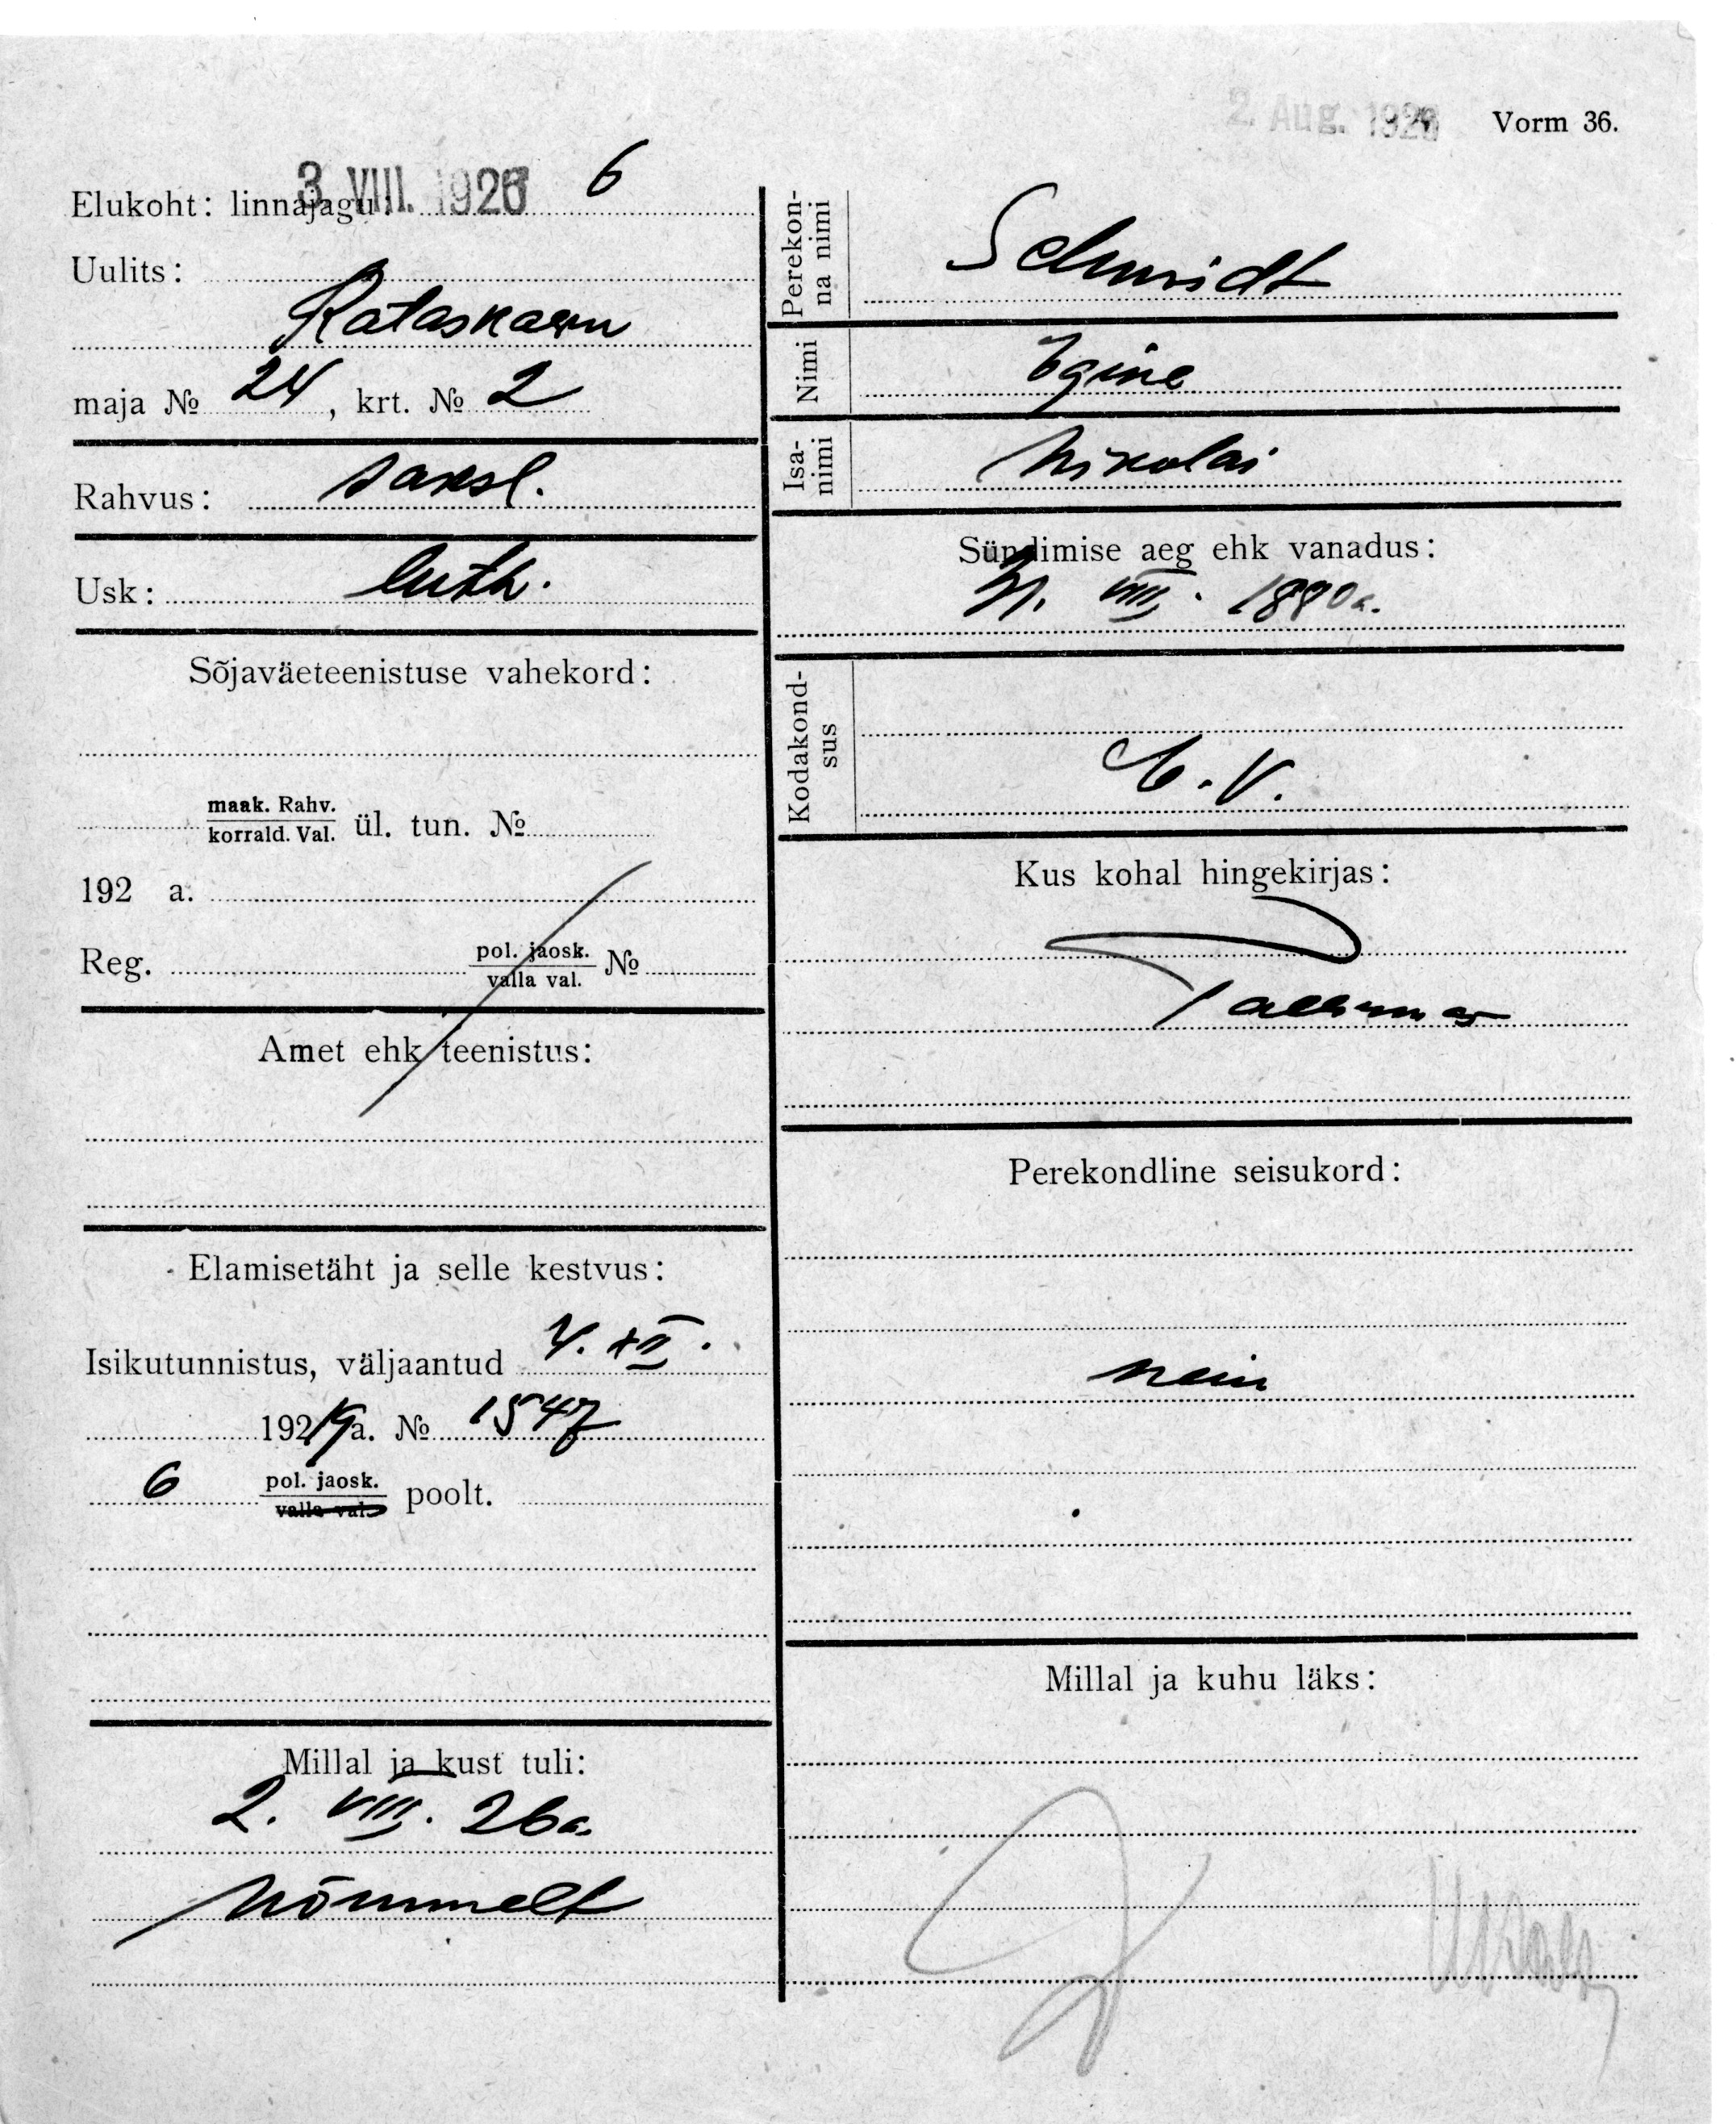 2. Aug. 192
Vorm 36.
3. VIII. 1926
Elukoht: linnajagu: 6
Uulits:
Rataskaevu
maja № 24, krt. № 2
Rahvus: saksl.
Usk: luth.
Sõjaväeteenistuse vahekord:
maak. Rahv.
korrald. Val. ül. tun. №
192 a.
Reg. pol. jaosk. №
valla val.
Amet ehk teenistus:
Elamisetäht ja selle kestvus:
Isikutunnistus, väljaantud 4. XII.
19219a. № 1547
6 pol. jaosk. poolt.
valla val.
Millal ja kust tuli:
2. VIII. 26a.
Nõmmelt
Perekon-
na nimi
Schmidt
Nimi
Egine
Isa-
nimi
Nikolai
Sündimise aeg ehk vanadus:
VIII. 1880a.
Kodakond-
sus
E.V.
Kus kohal hingekirjas:
Tallinnas
Perekondline seisukord:
Millal ja kuhu läks: